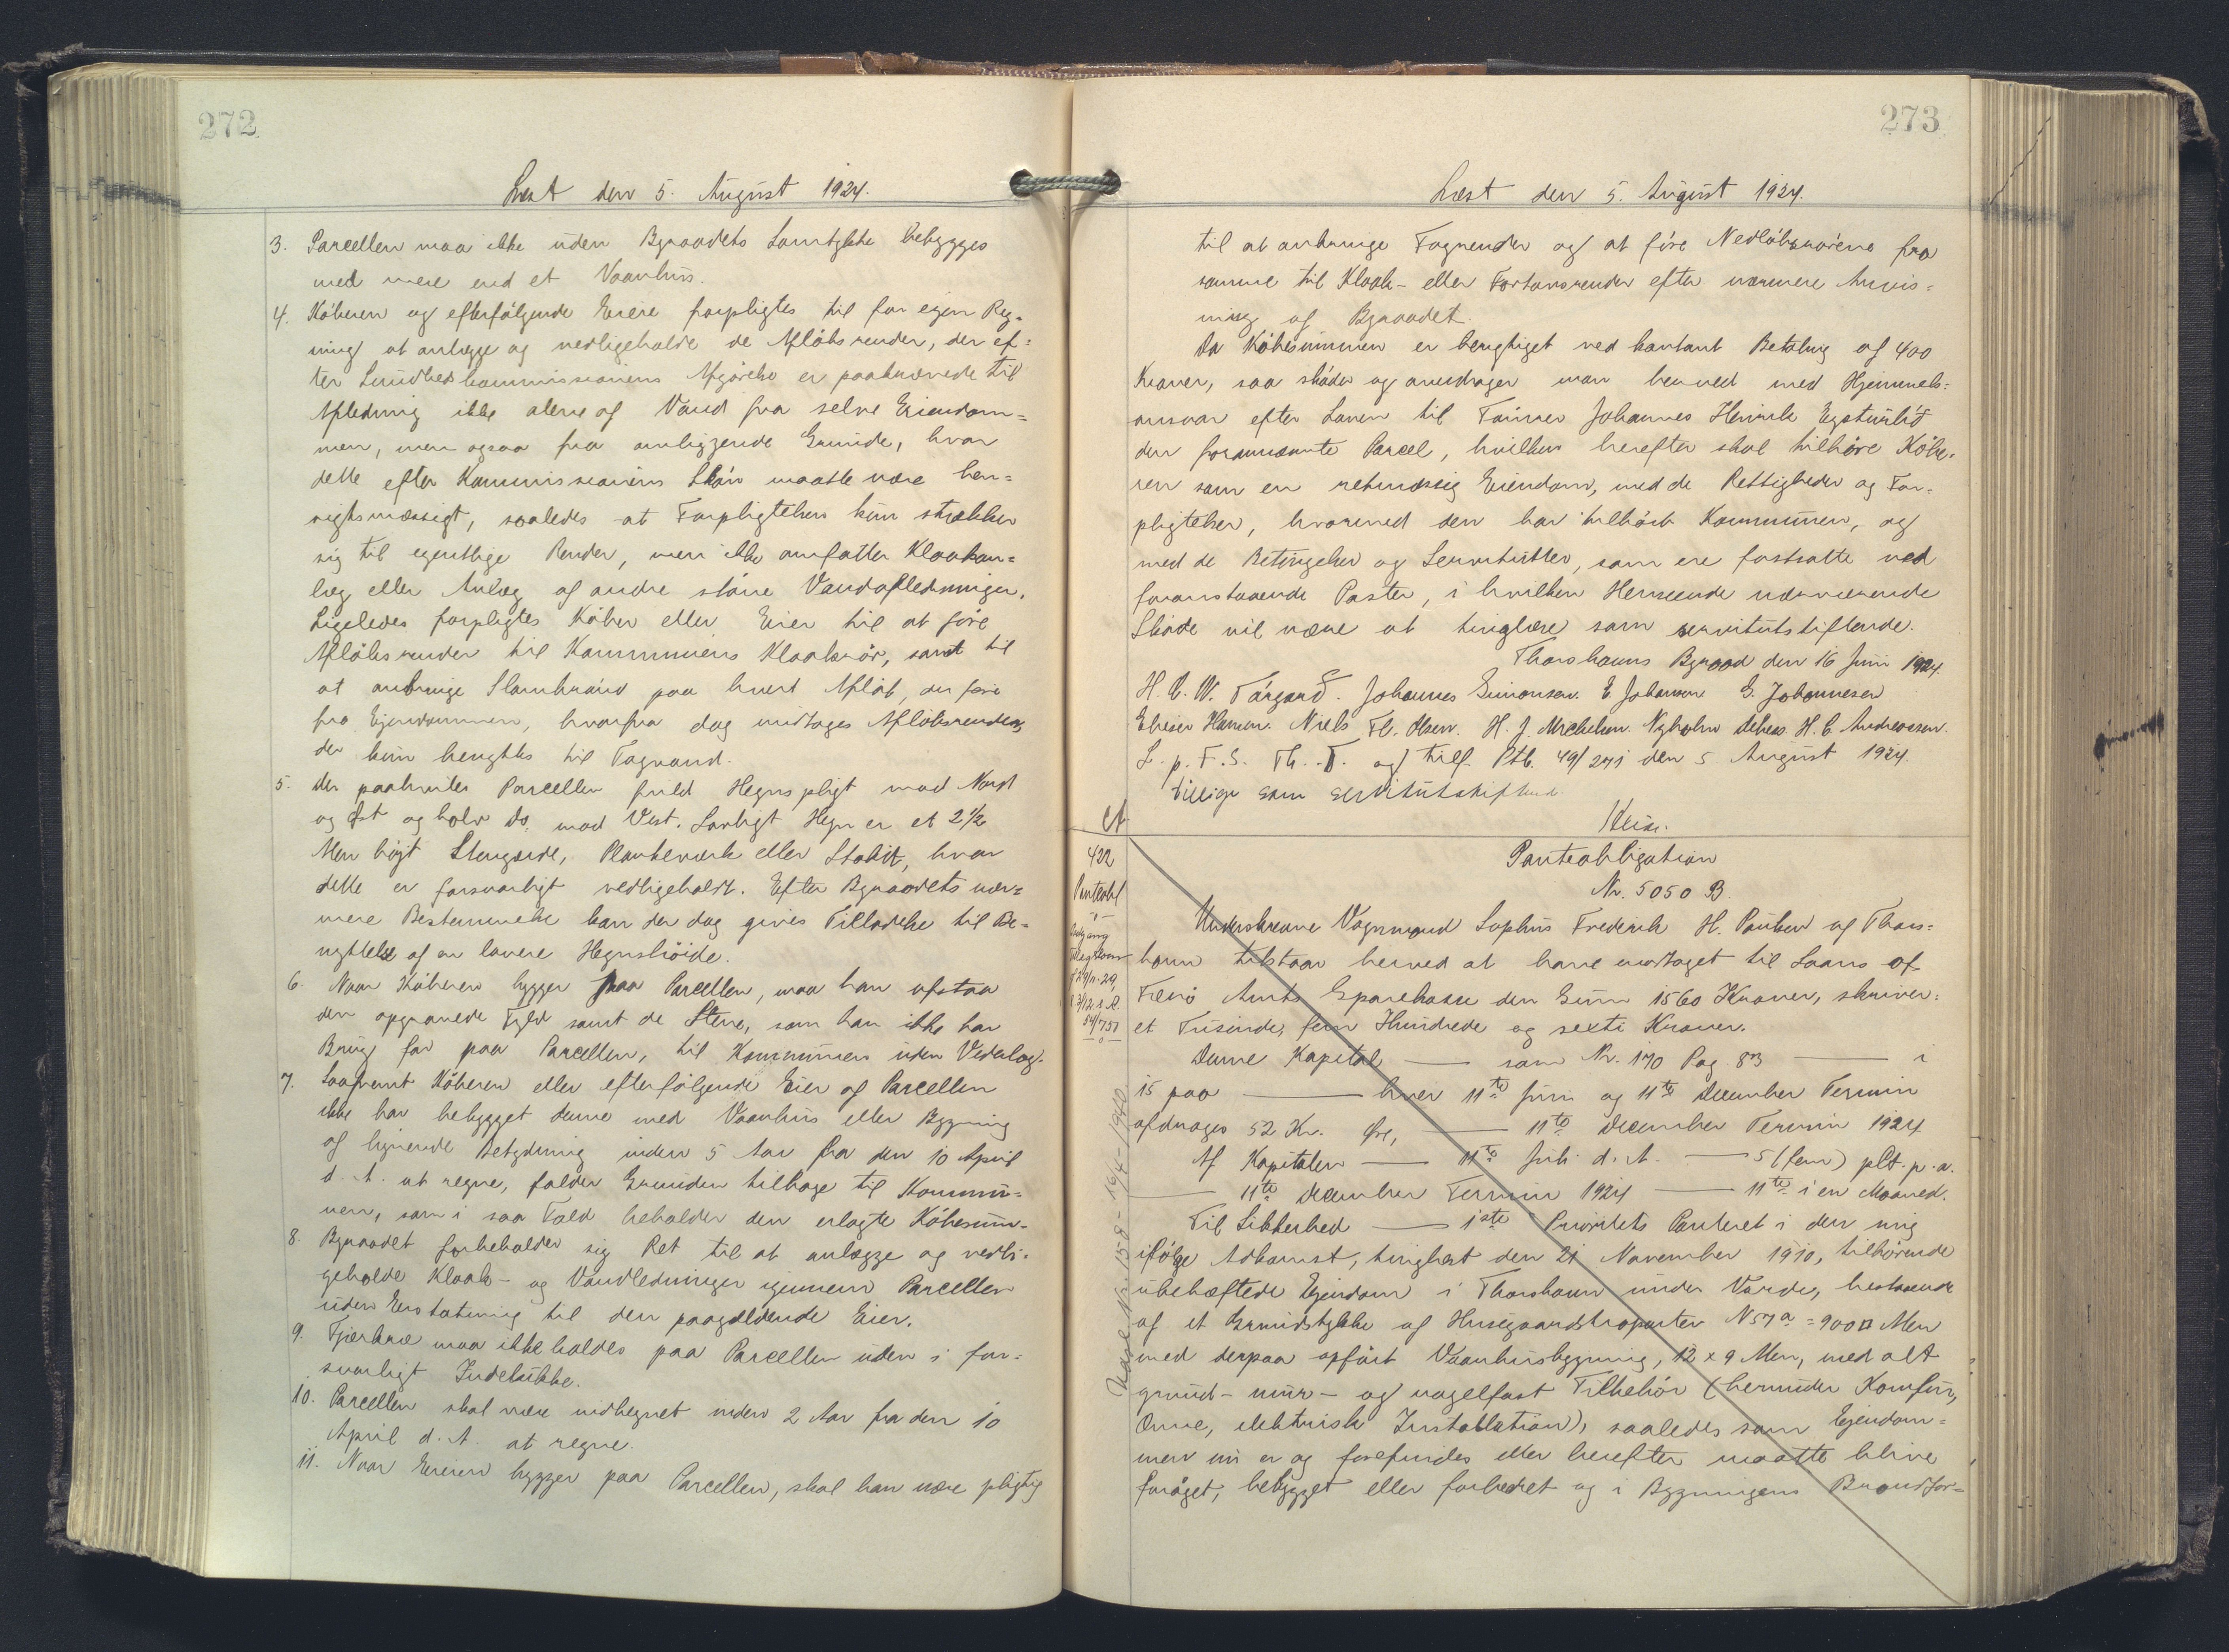 272
Læst den 5. August 1924.
3. Parcellen maa ikke uden Byraadets Samtykke bebygges
med mere end et Vaanhus.
4. Köberen og efterfølgende Eiere forpligtes til for egen Reg=
ning at anlægge og vedligeholde de Afløbsrender, der ef=
ter Sundhedskommissionens Afgörelse er paakrævede til
Afledning ikke alene af Vand fra selve Eiendom=
men, men ogsaa fra omliggende Grunde, hvor
dette efter Kommissionens Skön maatte være hen=
sigtsmæssigt, saaledes at Forpligtelsen kun strækker
sig til egentlige Render, men ikke omfatter Kloakan=
læg eller Anlæg af andre störe Vandafledninger.
Ligeledes forpligtes Köber eller Eier til at före
Aflöbsrender til Kommunens Kloakrör, samt til
at anbringe Slambrönd paa hvert Aflöb, der före
fra Ejendommen, hvorfra dog undtages Aflöbsrender,
der kun benyttes til Tagvand.
5. Der paahviler Parcellen fuld Hegnspligt mod Nord
og Øst og halv do. mod Vest. Lovligt Hegn er et 2½
Alen höjt Stengærde, Plankeværk eller Stakit, hvor
dette er forsvarligt vedligeholdt. Efter Byraadets nær=
mere Bestemmelse kan der dog gives Tilladelse til Be=
nyttelse af en lavere Hegnshöide.
6. Naar Köberen bygger paa Parcellen, maa han afstaa
den opgravede Fyld samt de Stene, som han ikke har
Brug for paa Parcellen, til Kommunen uden Vederlag.
7. Saafremt Köberen eller efterfølgende Eier af Parcellen
ikke har bebygget denne med Vaanhus eller Bygning
af lignende Betydning inden 5 Aar fra den 10 April
d. A. at regne, falder Grunden tilbage til Kommu=
nen, som i saa Fald beholder den erlagte Köbesum.
8. Byraadet forbeholder sig Ret til at anlægge og vedli=
geholde Kloak- og Vandledninger igennem Parcellen
uden Erstatning til den paagældende Eier.
9. Fjerkræ maa ikke holdes paa Parcellen uden i for=
svarligt Indelukke.
10. Parcellen skal være indhegnet inden 2 Aar fra den 10
April d. A. at regne.
11. Naar Eieren bygger paa Parcellen, skal han være pligtig
273
Læst den 5. August 1924.
til at anbringe Tagrender og at före Nedlöbsrörene fra
samme til Kloak- eller Fortovsrender efter nærmere Anvis=
ning af Byraadet.
Da Köbesummen er berigtiget ved kontant Betaling af 400
Kroner, saa sköder og overdrager man herved med Hjemmels=
ansvar efter Loven til Tömrer Johannes Henrik Egstulid
den forannævnte Parcel, hvilken herefter skal tilhöre Köbe=
ren som en retmæssig Eiendom, med de Rettigheder og For=
pligtelser, hvormed den har tilhört Kommunen, og
med de Betingelser og Servitutter, som ere fastsatte ved
foranstaaende Poster, i hvilken Henseende nærværende
Sköde vil være at tinglæse som servitutstiftende.
Thorshavns Byraad den 16 Juni 1924.
H. C. W. Tórgard. Johannes Simonsen. E. Johansen G. Johannesen
Elieser Hansen. Niels Fl. Olsen. H. J. Michelsen. Nyholm Debess. H. C. Andreassen.
L. p. F. S. Th. T. og tilf. Ptb. 49/241 den 5 August 1924.
tillige som servitutstiftende
422
Panteobl
Panteobligation
Nr. 5050 B
Underskrevne Vognmand Sophus Frederik H. Poulsen af Thors=
havn tilstaar herved at have modtaget til Laans af
Færø Amts Sparekasse den Sum 1560 Kroner, skriver:
et Tusinde, fem Hundrede og sexti Kroner.
Denne Kapital — som Nr. 170 Pag. 83 — i
15 paa — hver 11te Juni og 11te December Termin
afdrages 52 Kr. Øre, — 11te December Termin 1924
Af Kapitalen — 11te Juli d. A. — 5 (fem) pCt. p. a.
— 11te December Termin 1924 — 11te i en Maaned.
Til Sikkerhed — 1ste Prioritets Panteret i den mig
ifölge Adkomst, tinglæst den 21 November 1910, tilhörende
ubehæftede Ejendom i Thorshavn under Varde, bestaaende
af et Grundstykke af Husegaardstroparten No 57a = 900 □ Alen
med derpaa opfört Vaanhusbygning, 12 x 9 Alen, med alt
grund- mur- og nagelfast Tilbehör (herunder Komfur,
Ovne, elektrisk Installation), saaledes som Ejendom=
men nu er og forefindes eller herefter maatte blive
foröget, bebygget eller forbedret og i Bygningens Brandfor=